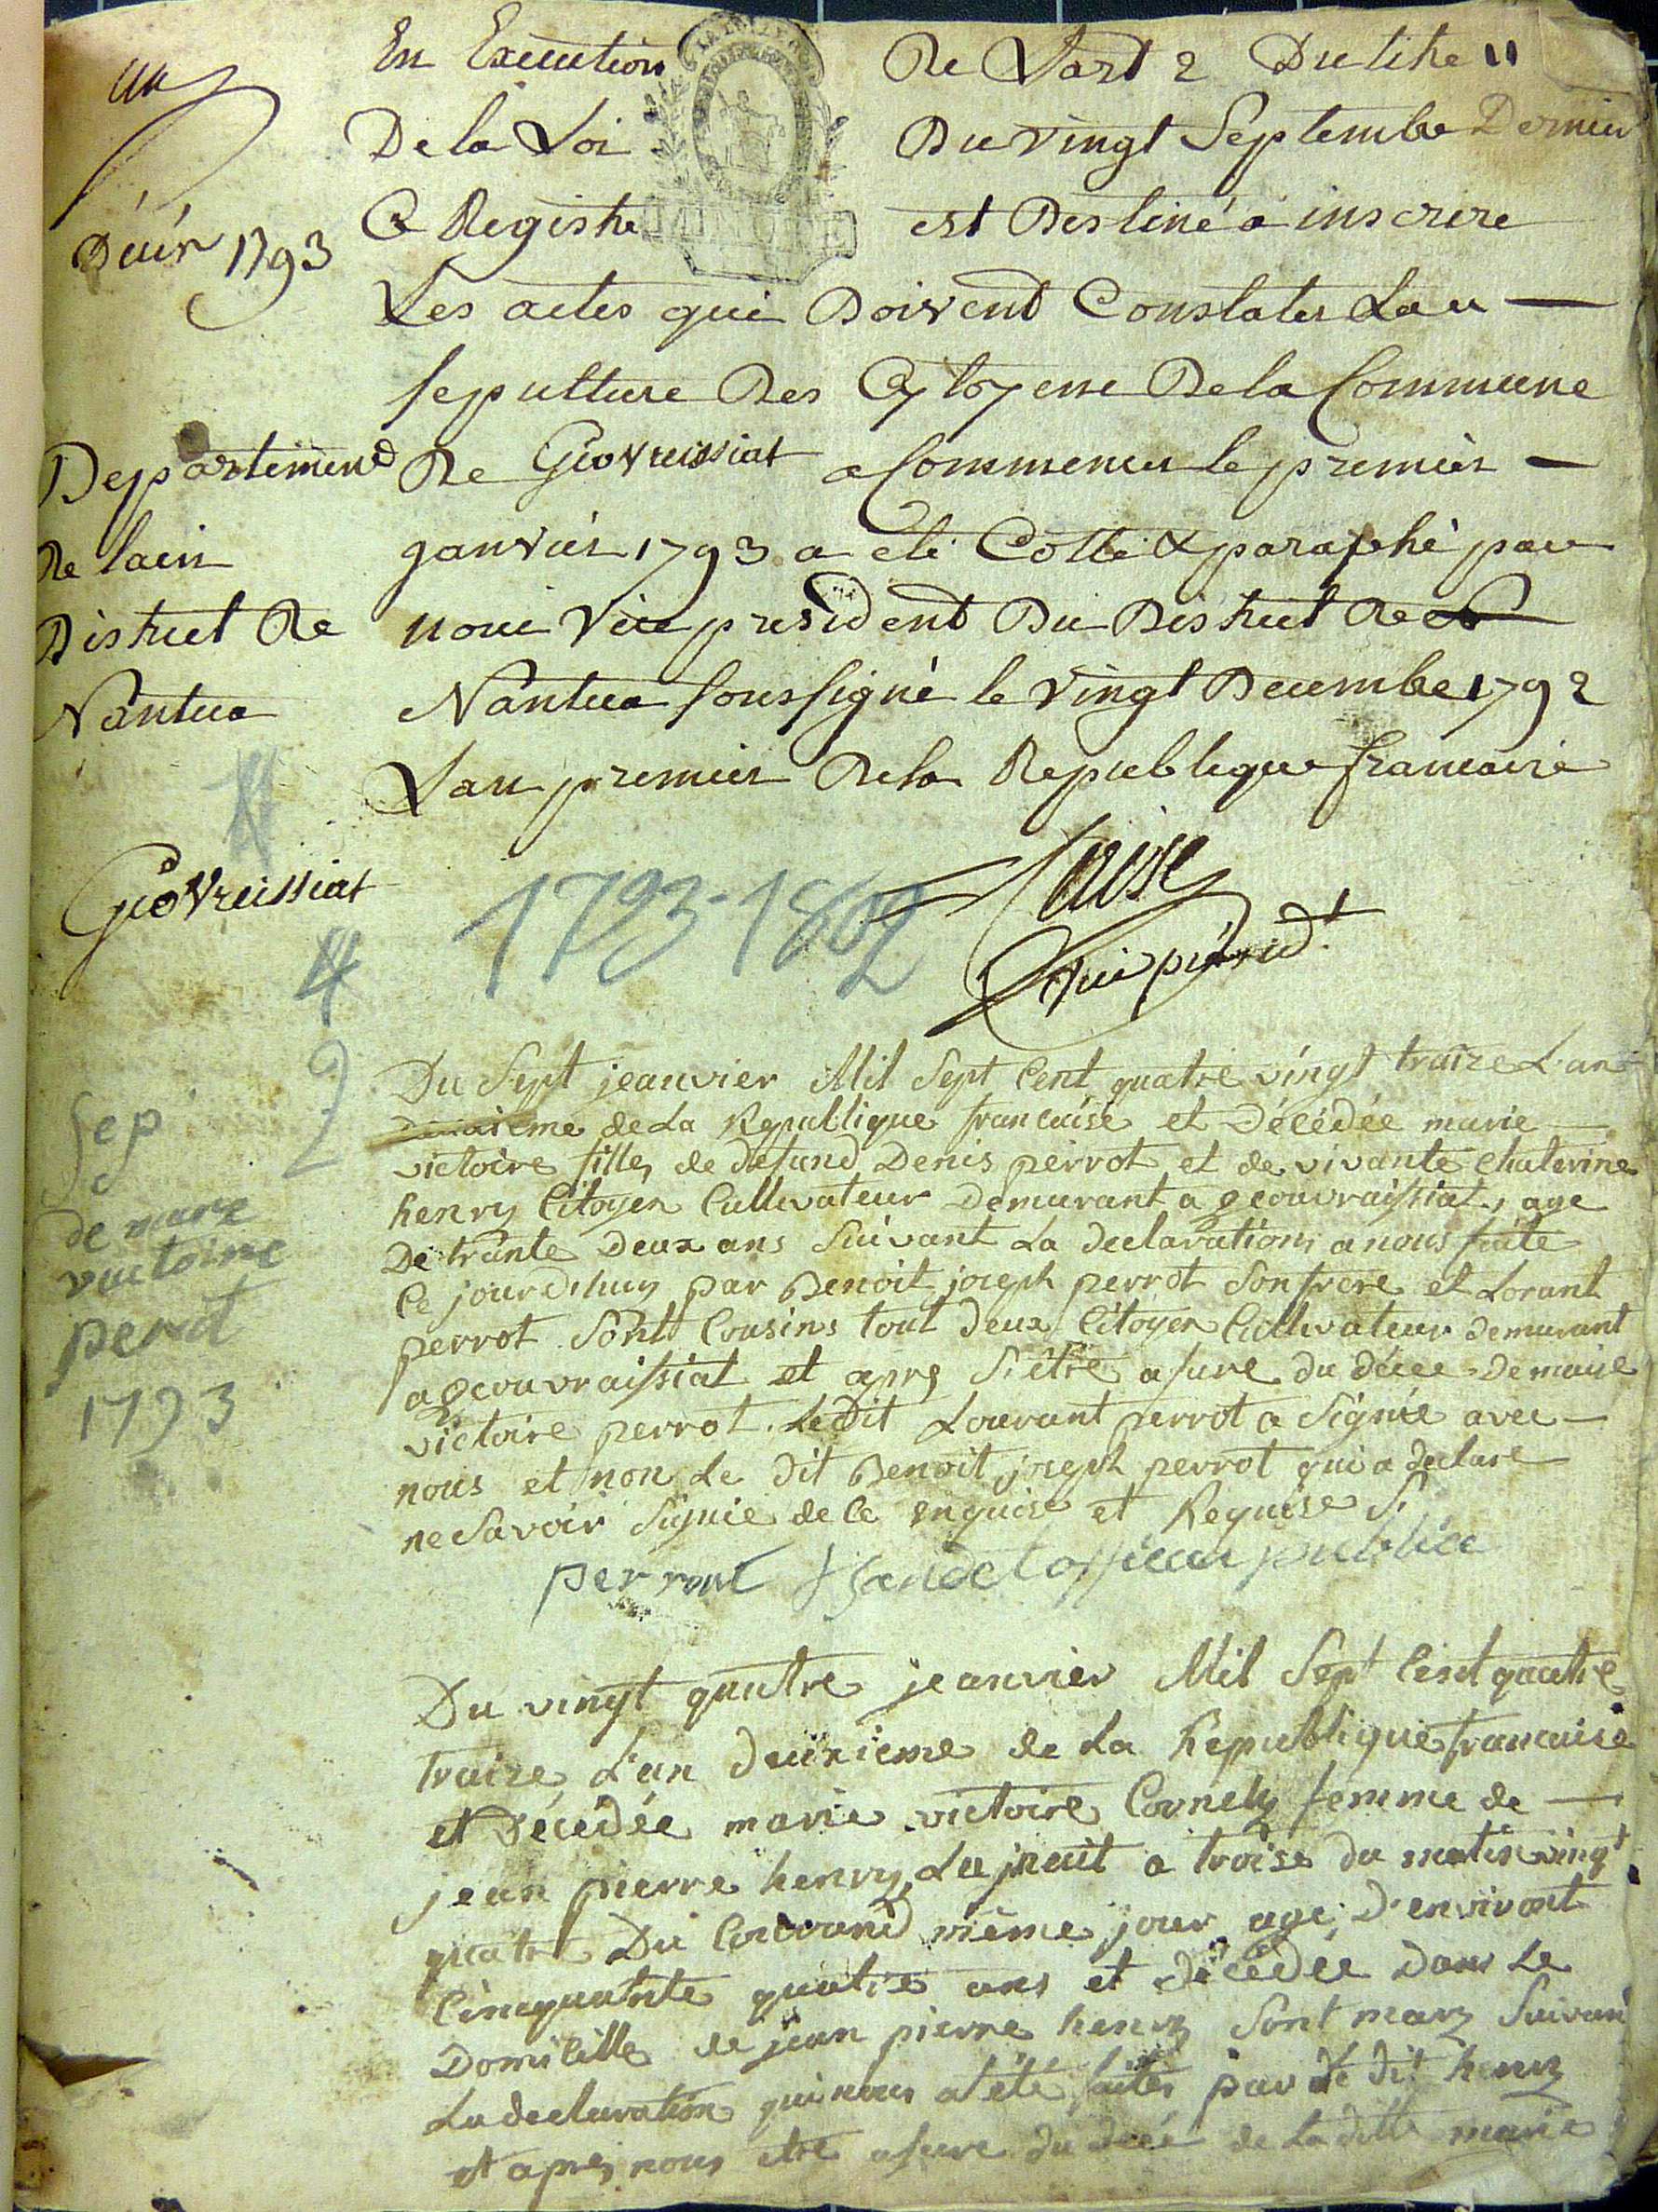 un
Décès 1793
Departement
De lain
District De
Nantua
Géovreissiat
En Execution De L'art 2 Du titre 11
De la Loi Du vingt Septembre Dernier
Ce Registre est Destiné a inscrire
Les actes qui Doivent Constater La
sepulture Des Cytoyens De la Commune
De Géovreissiat a Commencer le premier
janvier 1793 a eté Cotté & paraphé par
nous Vice president Du District De
Nantua soussigné le vingt Decembre 1792
L'an premier De la Republique francaise
vice présidt
1793-1802
Sep
de marie
victoire
perrot
1793
Du Sept jeanvier Mil Sept Cent quatre vingt traize L'an
deuxieme de La Republique francaise et Décédée marie
victoire fille de defund Denis perrot et de vivante Chaterine
henry Citoyen Cultivateur demurant a geouvraissiat, age
De trante Deux ans Suivant La declaration a nous faite
Ce jourdhuy par Benoit joseph perrot Son frere et Lorant
perrot Sont Cousins tout deux Citoyen Cultivateur demurant
a geouvraissiat et apres S'etre asure du décee de marie
victoire perrot. Le Dit Lourant perrot a Signie avec
nous et non Le dit Benoit joseph perrot qui a declare
ne Savoir Signie de Ce enquise et Requise
perrout officier publice
Du vingt quatre jeanvier Mil Sept Cent quatre
traize L'an deuxieme de La Republique francaise
et Décédée marie victoire Cornely femme de
jean pierre henry, La nuit a troise du matin vingt
quatre Du Courand même jour age D'environt
Cinquante quatre ans et décédée Dans Le
Domicille de jean pierre henry Sont mary Suivant
La declaration qui nous a été faites par Le dit henry
et apres nous etre asure du décé de La ditte marie